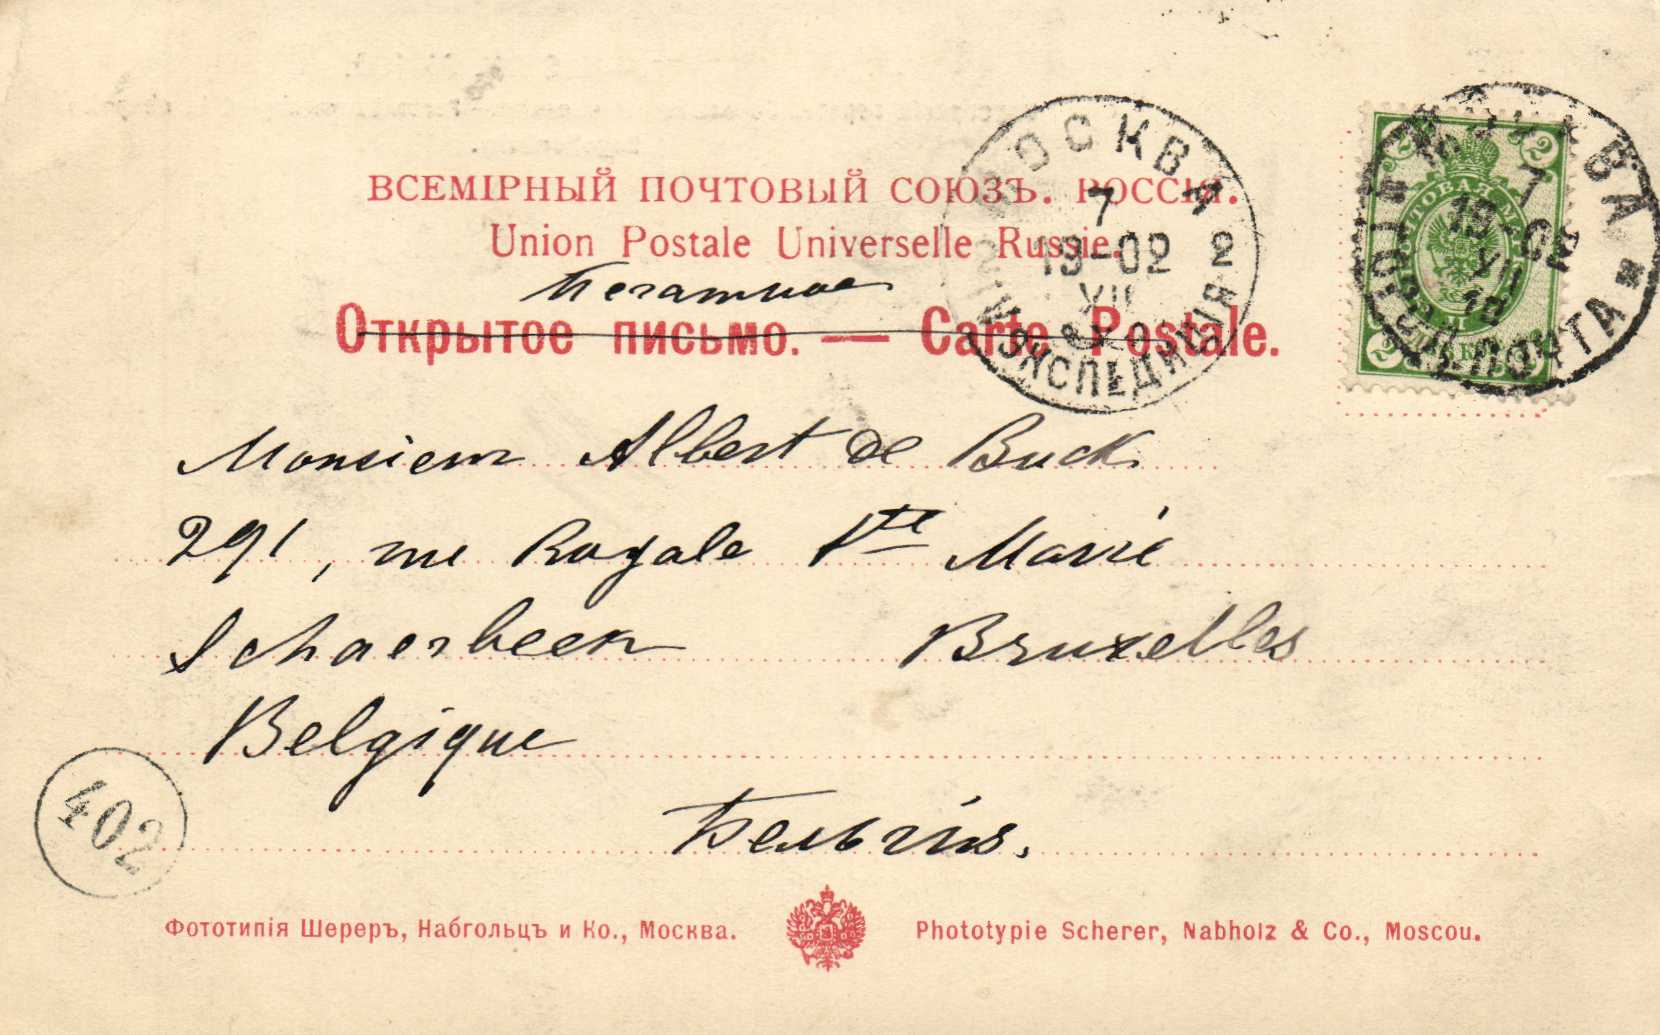 ВСЕМІРНЫЙ ПОЧТОВЫЙ СОЮЗЪ. РОССІЯ.
Union Postale Universelle Russie.
Печатное
Открытое письмо. — Carte Postale.
МОСКВА
7
19-02
XII
2
ЭКСПЕДИЦІЯ
МОСКВА
7
19-02
XII
ПОЧТА
2
2
Monsieur Albert de Buck
291, rue Royale Ste Marie
Schaerbeek Bruxelles
Belgique
Бельгія.
402
Фототипія Шереръ, Набгольцъ и Ко., Москва.
Phototypie Scherer, Nabholz & Co., Moscou.